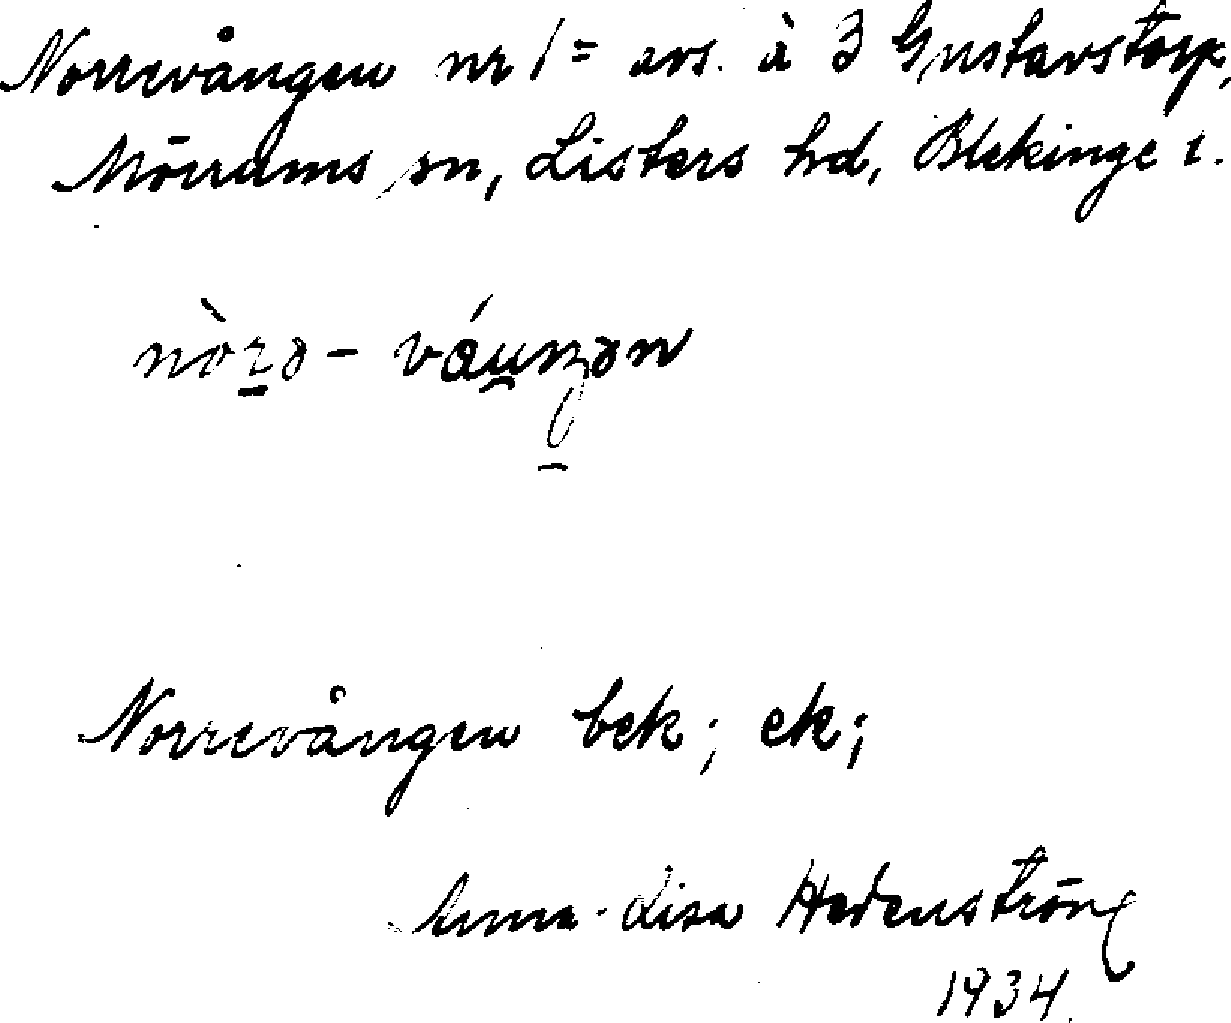 Norrevången nr 1 = avs. à 3 Gustavstorp,
Mörrums sn, Listers hd, Blekinge l.
nòrə - váuŋən
Norrevången bek; ek;
Anna-Lisa Hedenström
1934.